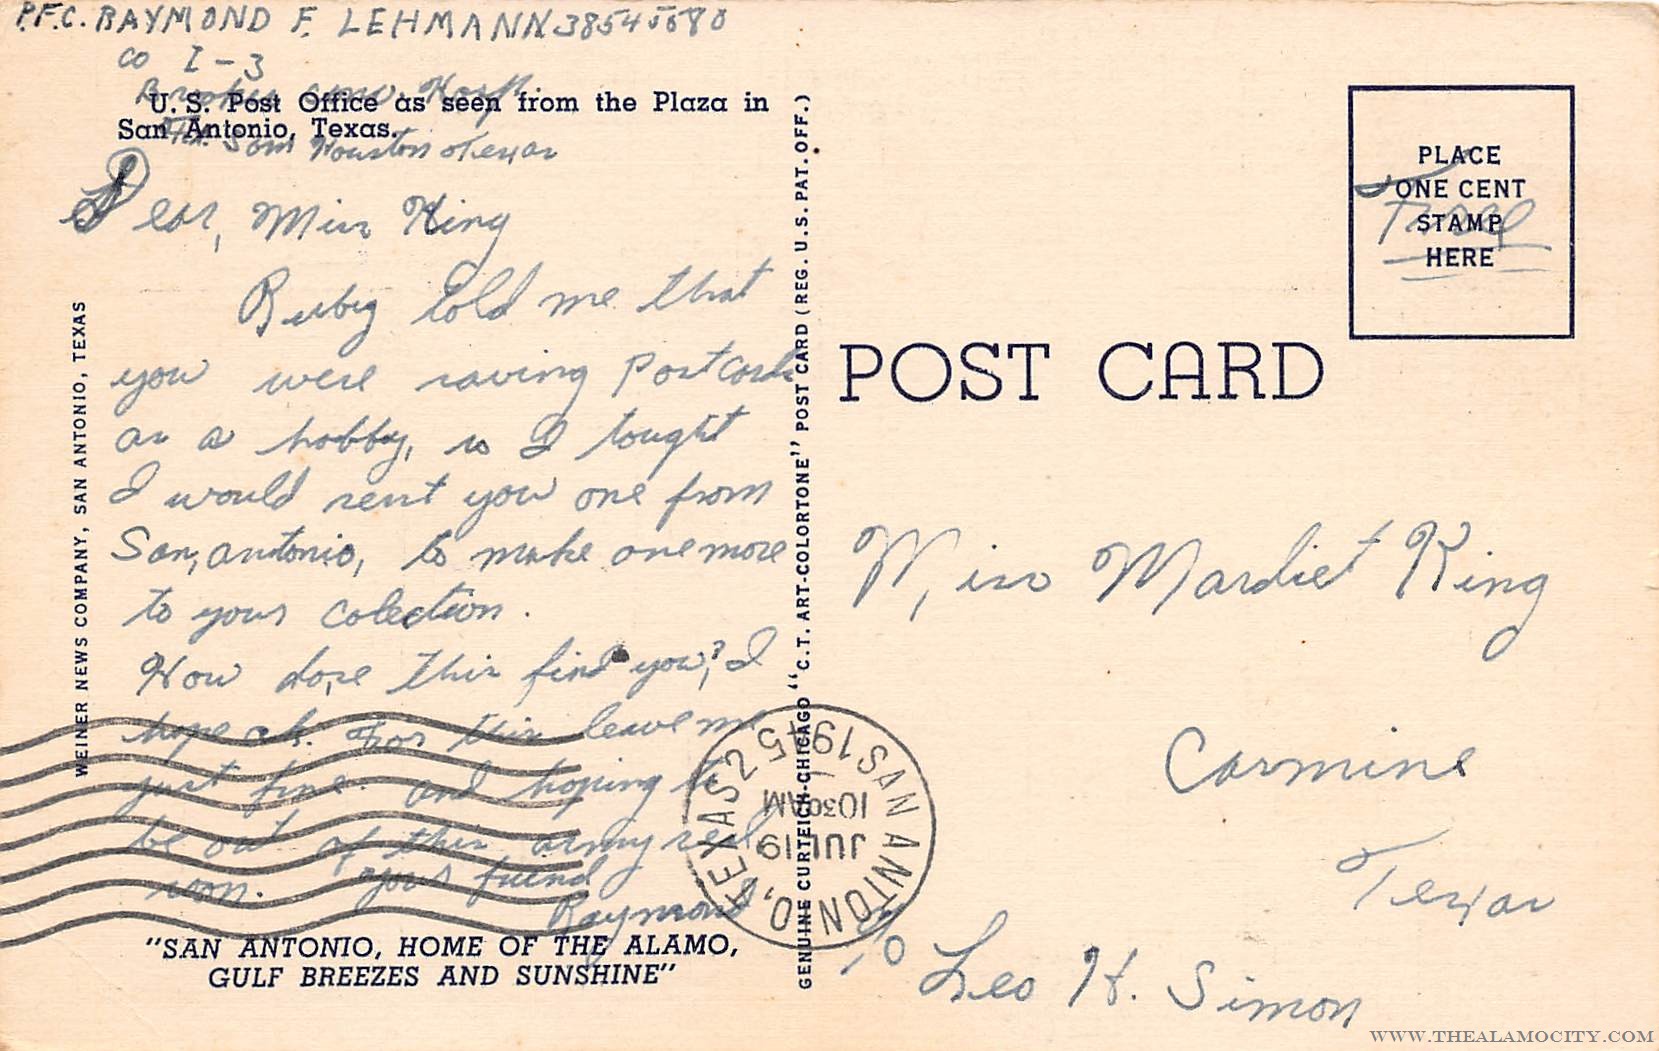 P.F.C. RAYMOND F. LEHMANN 38545680
Co I-3
Brooke Conv. Hosp.
U. S. Post Office as seen from the Plaza in
San Antonio, Texas.
Ft. Sam Houston Texas
Dear, Miss King
Ruby told me that
you were saving Postcards
as a hobby, so I tought
I would sent you one from
San, antonio, to make one more
to your colection.
How dose this find you? I
hope ok. For this leave me
just fine. and hoping to
be out of this army real
soon. Your friend
Raymond
"SAN ANTONIO, HOME OF THE ALAMO,
GULF BREEZES AND SUNSHINE"
WEINER NEWS COMPANY, SAN ANTONIO, TEXAS
GENUINE CURTEICH-CHICAGO "C.T. ART-COLORTONE" POST CARD (REG. U.S. PAT. OFF.)
SAN ANTONIO, TEXAS 2
JUL 19
10 30 AM
1945
PLACE
ONE CENT
STAMP
HERE
Free
POST CARD
Miss Mardiet King
Carmine
Texas
c/o Leo H. Simon
WWW.THEALAMOCITY.COM